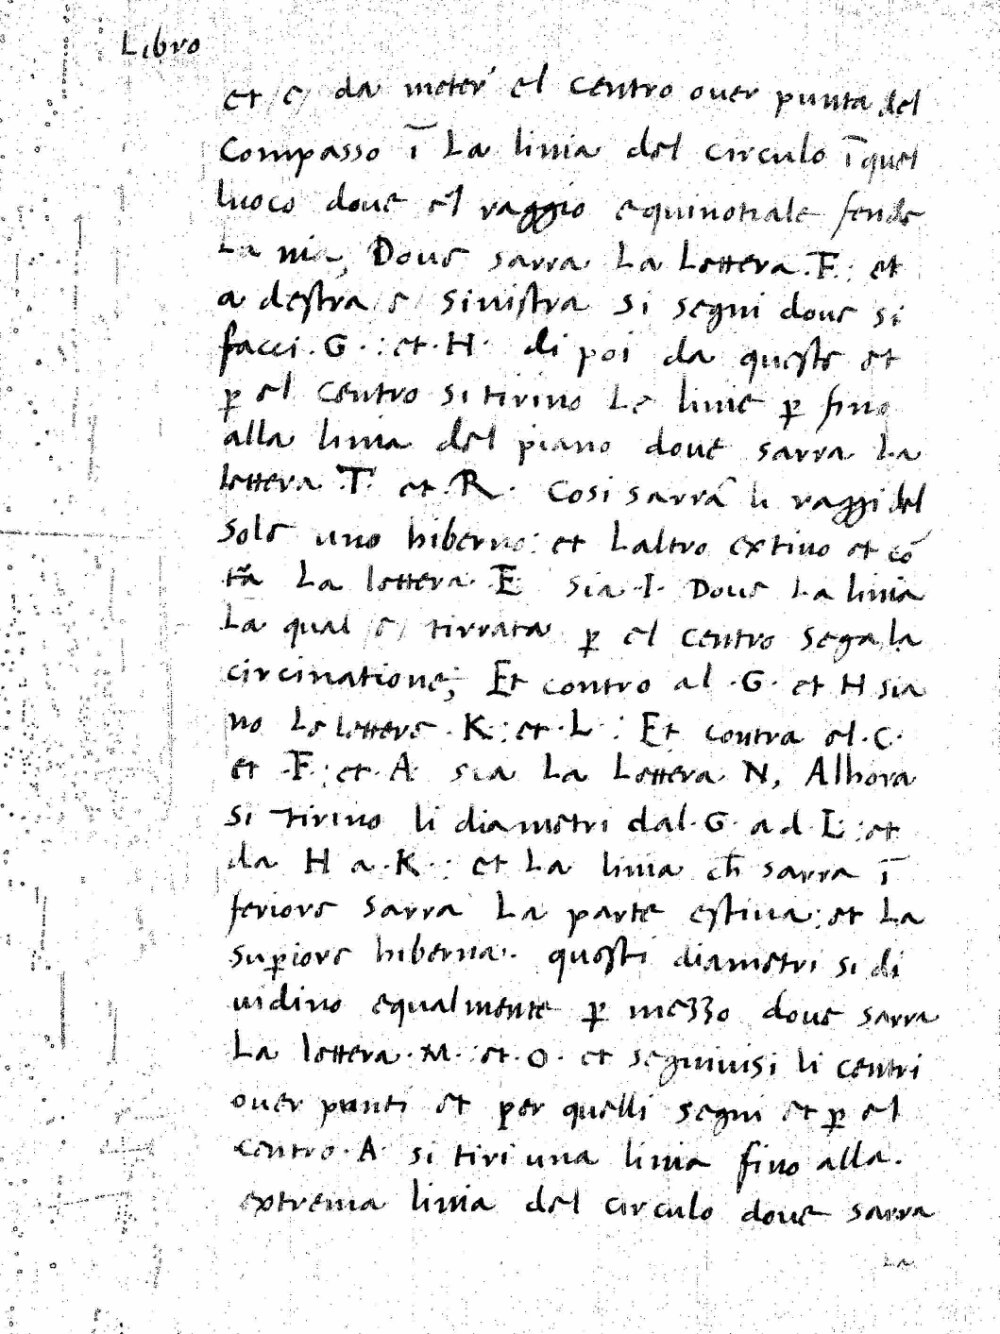 Libro
et /e/ da meter' el centro ouer punta del
Compasso ī La linia del circulo ī quel
luoco doue el raggio equinotiale fende
La nia, Doue sarra La Lettera .F. et
a destra /e/ sinistra si segni doue si
facci .G. : et .H. di poi da queste et
ꝑ el centro si tirino Le linie ꝑ fino
alla linia del piano doue sarra La
lettera .T. et .R. Cosi sarrā li raggi del
Sole uno hiberno: et Laltro extiuo et cō
tra La lettera .E. sia .I. Doue La linia
La qual /e/ tirrata ꝑ el centro sega la
circinatione; Et contro al .G. et H sia
no Le lettere .K. : et .L. : Et contra el .C.
et .F. : et .A. sia La Lettera N, Alhora
si tirino li diametri dal .G. ad .L. : et
da H a .K. : et La linia ch̄ sarra ī
feriore sarra La parte estiua: et La
suꝑiore hiberna. questi diametri si di
uidino equalmente ꝑ mezzo doue sarra
La lettera .M. : et .O. et seguiuisi li centri
ouer punti et per quelli segni et ꝑ el
centro .A. si tiri una linia fino alla.
extrema linia del circulo doue sarra
La